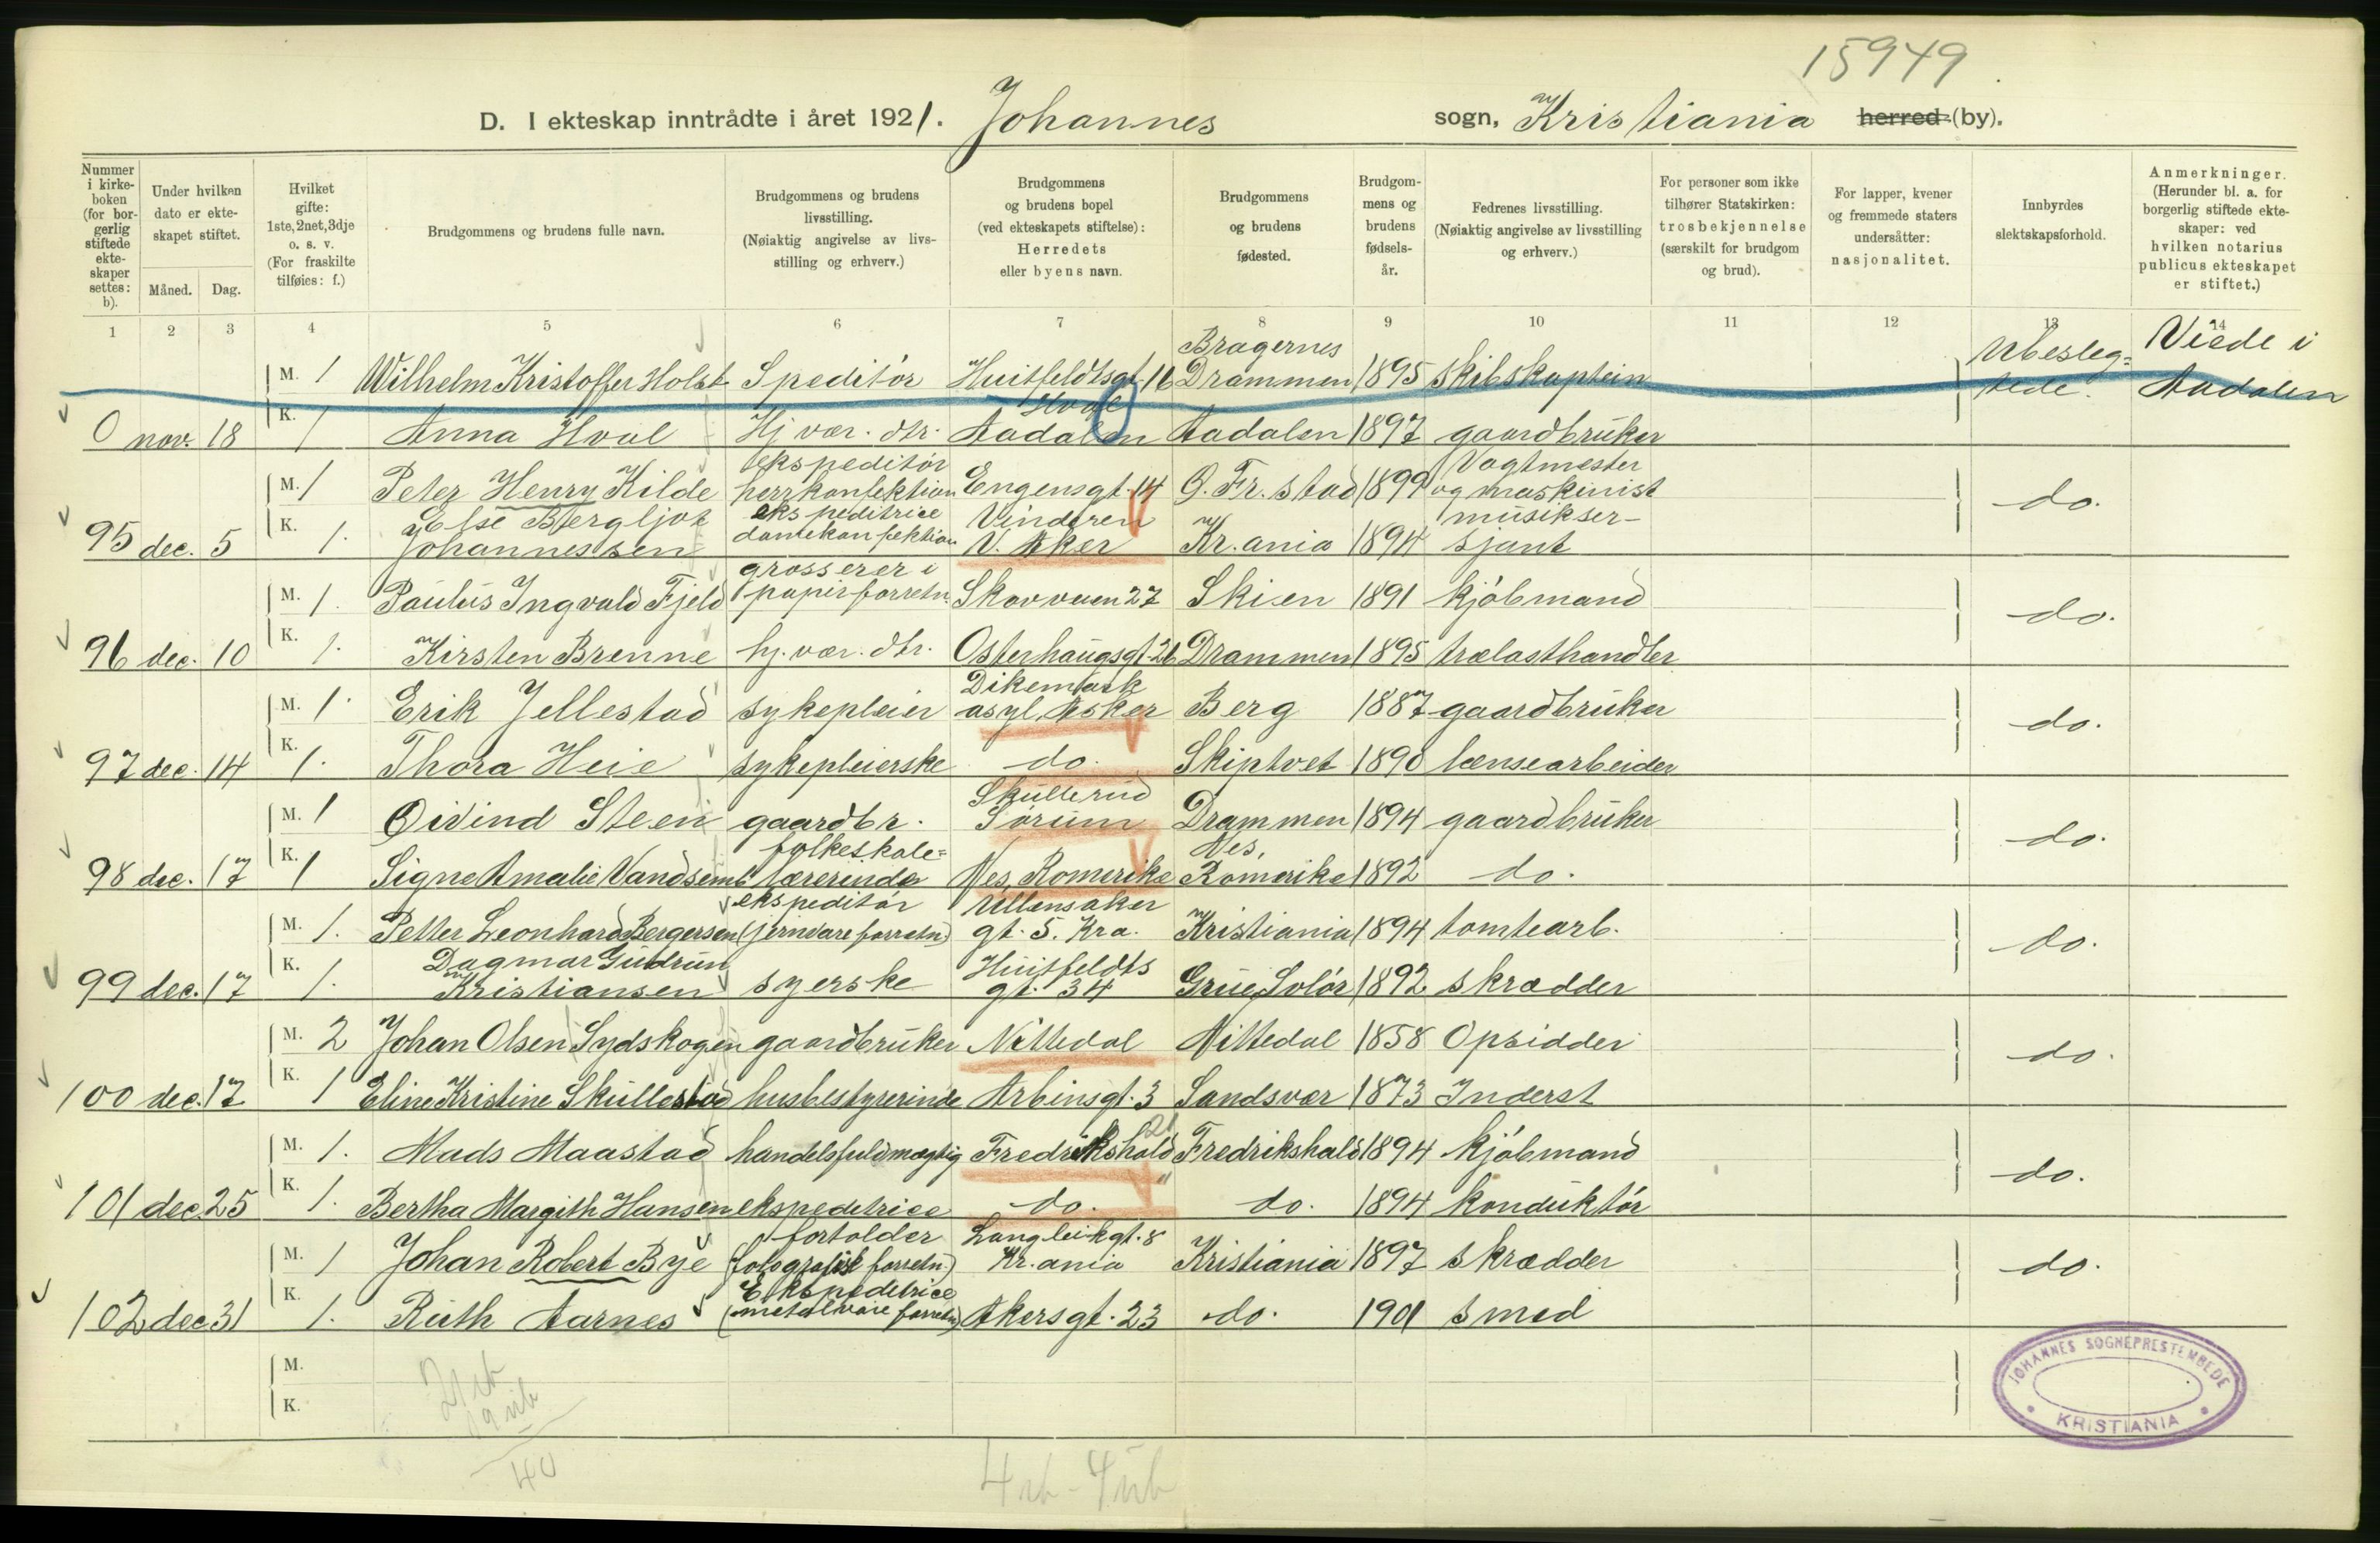 15949
D. I ekteskap inntrådte i året 1921. Johannes sogn, Kristiania herred (by).
Nummer i kirkeboken (for borgerlig stiftede ekteskaper settes: b).
Under hvilken dato er ekteskapet stiftet.
Måned. Dag.
Hvilket gifte: 1ste, 2net, 3dje o. s. v. (For fraskilte tilføies: f.)
Brudgommens og brudens fulle navn.
Brudgommens og brudens livsstilling. (Nøiaktig angivelse av livsstilling og erhverv.)
Brudgommens og brudens bopel (ved ekteskapets stiftelse): Herredets eller byens navn.
Brudgommens og brudens fødested.
Brudgommens og brudens fødselsår.
Fedrenes livsstilling. (Nøiaktig angivelse av livsstilling og erhverv.)
For personer som ikke tilhører Statskirken: trosbekjennelse (særskilt for brudgom og brud).
For lapper, kvener og fremmede staters undersåtter: nasjonalitet.
Innbyrdes slektskapsforhold.
Anmerkninger. (Herunder bl. a. for borgerlig stiftede ekteskaper: ved hvilken notarius publicus ekteskapet er stiftet.)
1 2 3 4 5 6 7 8 9 10 11 12 13 14
M. 1 Wilhelm Kristoffer Holst Speditör Huitfeldtsgt. 16 Bragernes Drammen 1895 skibskaptein Ubeslegtede. Viede i Aadalen
0 nov. 18 K. 1 Anna Hval Hj. vær. dtr. Hval Aadalen Aadalen 1897 gaardbruker
M. 1 Peter Henry Kilde ekspeditör herrkonfektion Engensgt. 14 G. Fr. stad 1899 Vagtmester og maskinist do.
95 dec. 5 K. 1. Else Bergljot Johannessen ekspeditrice damekonfektion Vinderen V. Aker Kr.ania 1894 musiksersjant
M. 1. Paulus Ingvald Fjeld grosserer i papirforretn. Skovveien 27 Skien 1891 kjöbmand do.
96 dec. 10 K. 1. Kirsten Brenne hj. vær. dtr. Osterhaugsgt. 26 Drammen 1895 trælasthandler
M. 1. Erik Jellestad sykepleier Dikemark asyl, Asker Berg 1887 gaardbruker do.
97 dec. 14 K. 1. Thora Heie sykepleierske do. Skiptvet 1890 lænsearbeider
M. 1 Øivind Steen gaardbr. Skullerud Sørum Drammen 1894 gaardbruker do.
98 dec. 17 K. 1 Signe Amalie Vandsemb folkeskolelærerinde Nes, Romerike Nes, Romerike 1892 do.
M. 1. Petter Leonhard Bergersen ekspeditör (jernvareforretn) Ullensakergt. 5. Kra. Kristiania 1894 tomtearb. do.
99 dec. 17 K. 1. Dagmar Gudrun Kristiansen syerske Huitfeldtsgt. 34 Grue, Solör 1892 skrædder
M. 2 Johan Olsen Sydskogen gaardbruker Nittedal Nittedal 1858 Opsidder do.
100 dec. 17 K. 1 Eline Kristine Skullestad husbestyrerinde Arbinsgt. 3 Sandsvær 1873 Inderst
M. 1. Mads Maastad handelsfuldmægtig Fredrikshald Fredrikshald 1894 kjöbmand do.
101 dec. 25 K. 1. Bertha Margith Hansen ekspeditrice do. do. 1894 konduktör
M. 1 Johan Robert Bye fortolder (fotografisk forretn.) Langleikgt. 8 Kr.ania Kristiania 1897 skrædder do.
102 dec 31 K. 1. Ruth Aarnes Ekspeditrice (metalvare forretn) Akersgt. 23 do. 1901 smed
M.
K.
40
JOHANNES SOGNEPRESTEMBEDE
KRISTIANIA